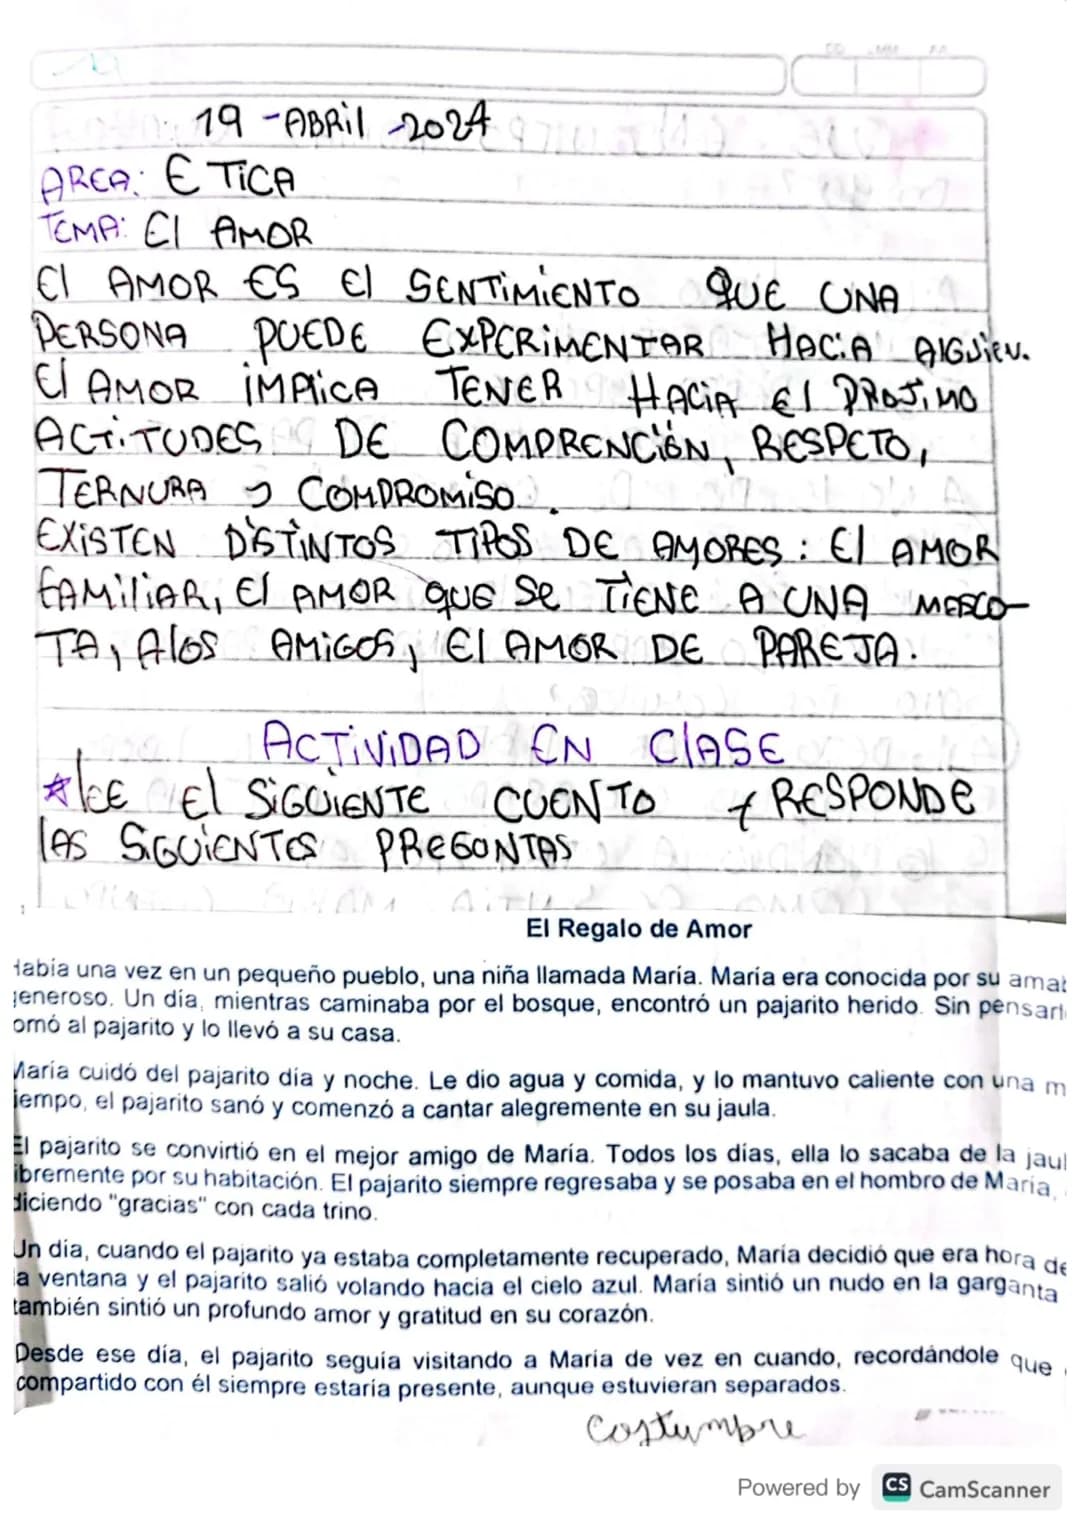 DD MM AA
19 -ABRil -2024
AREA: ETiCA
TEMA: El AMOR
El AMOR ES El SENTiMiENTO QUE UNA
PERSONA PUEDE EXPERiMENTAR HACiA AlGUiEN.
El AMOR iMPliCA TENER HACiA El PROJiMO
ACTiTUDES DE COMPRENCiÓN, RESPETO,
TERNURA y COMPROMiSO.
EXiSTEN DiSTiNTOS TiPOS DE AMORES: El AMOR
FAMiliAR, El AMOR QUE SE TiENE A UNA MASCO-
TA, AlOS AMiGOS, El AMOR DE PAREJA.
ACTiViDAD EN ClASE
*lEE El SiGUiENTE CUENTO y RESPONDE
lAS SiGUiENTES PREGUNTAS
El Regalo de Amor
Había una vez en un pequeño pueblo, una niña llamada María. María era conocida por su amab
generoso. Un día, mientras caminaba por el bosque, encontró un pajarito herido. Sin pensarl
omó al pajarito y lo llevó a su casa.
María cuidó del pajarito día y noche. Le dio agua y comida, y lo mantuvo caliente con una m
iempo, el pajarito sanó y comenzó a cantar alegremente en su jaula.
El pajarito se convirtió en el mejor amigo de María. Todos los días, ella lo sacaba de la jaul
ibremente por su habitación. El pajarito siempre regresaba y se posaba en el hombro de María,
diciendo "gracias" con cada trino.
Un día, cuando el pajarito ya estaba completamente recuperado, María decidió que era hora de
la ventana y el pajarito salió volando hacia el cielo azul. María sintió un nudo en la garganta
también sintió un profundo amor y gratitud en su corazón.
Desde ese día, el pajarito seguía visitando a María de vez en cuando, recordándole que
compartido con él siempre estaría presente, aunque estuvieran separados.
Costumbre
Powered by CS CamScanner